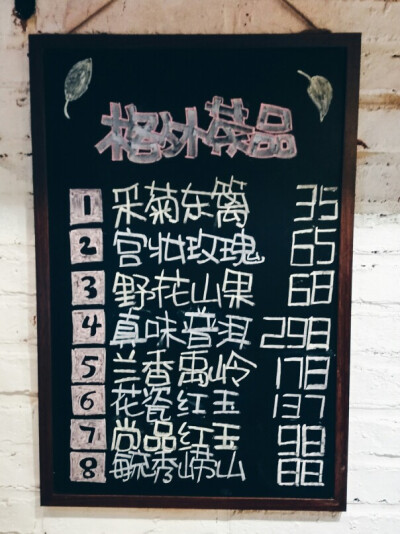 格外茶品
1 采菊东篱 35
2 宫妆玫瑰 65
3 野花山果 68
4 真味普洱 298
5 兰香禹岭 178
6 花瓷红玉 137
7 尚品红玉 98
8 毓秀山 88